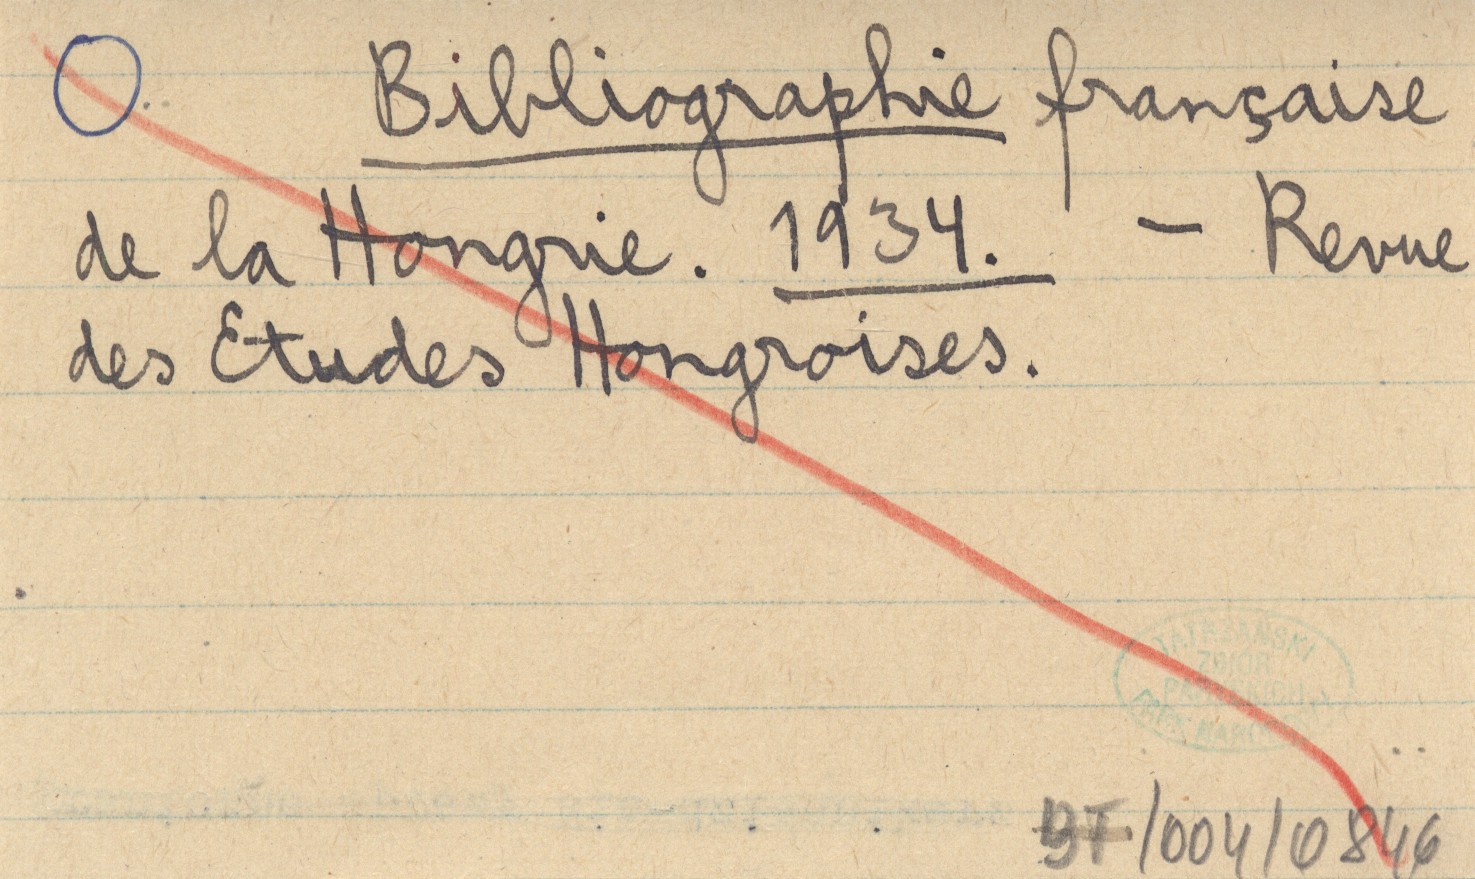 Bibliographie française
de la Hongrie. 1934. – Revue
des Etudes Hongroises.
TATRZAŃSKI
ZBIÓR
/004/0846